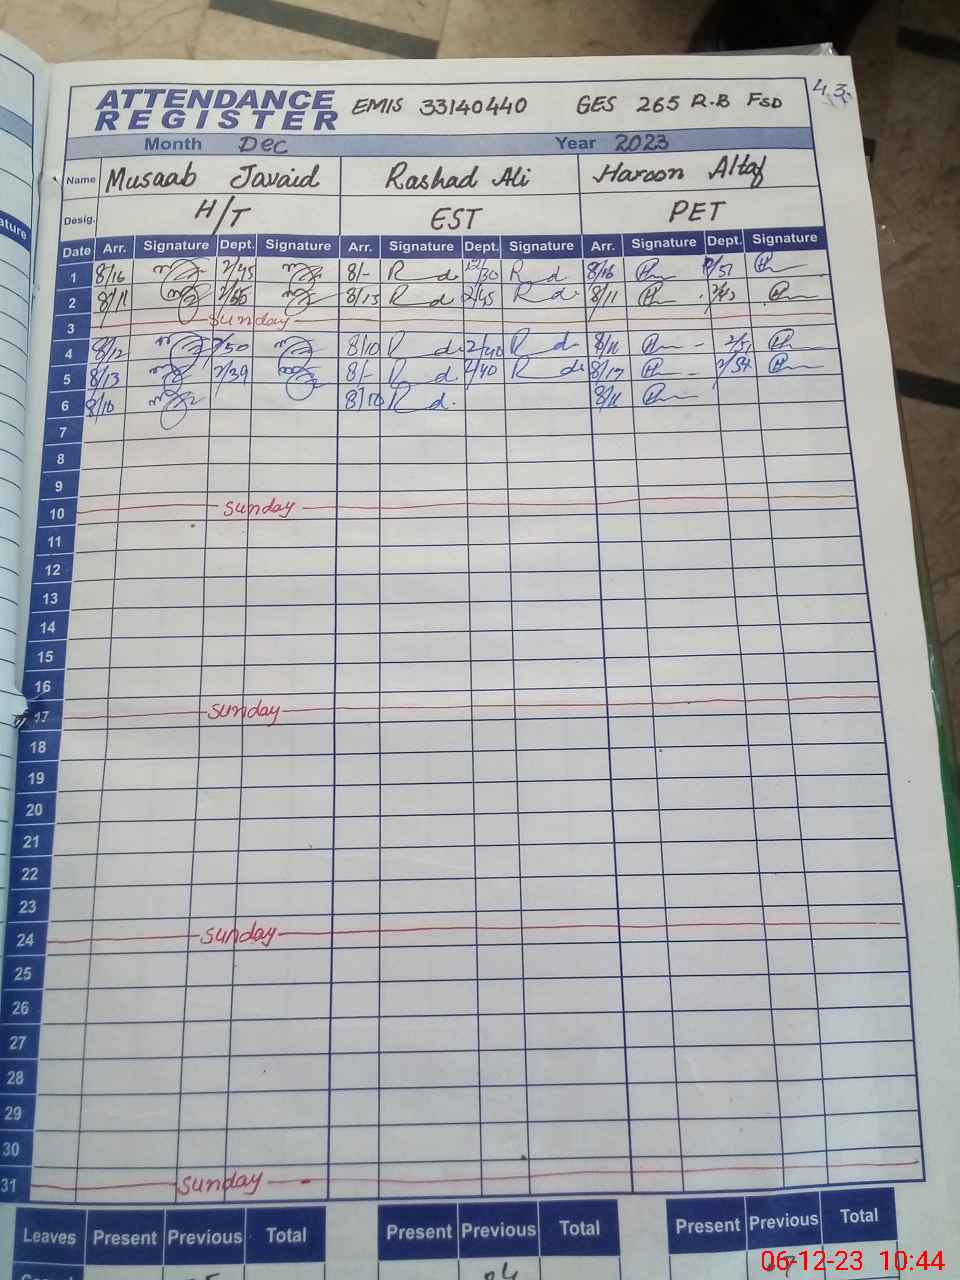 ATTENDANCE REGISTER EMIS 33140440 GES 265 R.B FSD
Month Dec Year 2023
Name Musaab Javaid Rashad Ali Haroon Altaf
Desig. H/T EST PET
Date Arr. Signature Dept. Signature Arr. Signature Dept. Signature Arr. Signature Dept. Signature
1 8/16 2/45 8/- R d 12/30 R d 8/16
2 8/11 8/13 R d 2/45 R d 8/11
3 sunday
4 8/12 2/50 8/10 R d 2/40 R d 8/11
5 8/13 2/39 8/- R d 2/40 R d 8/17 2/54
6 8/10 8/10 R d 8/11
7
8
9
10 sunday
11
12
13
14
15
16
17 sunday
18
19
20
21
22
23
24 sunday
25
26
27
28
29
30
31 sunday
Leaves Present Previous Total Present Previous Total Present Previous Total
06-12-23 10:44